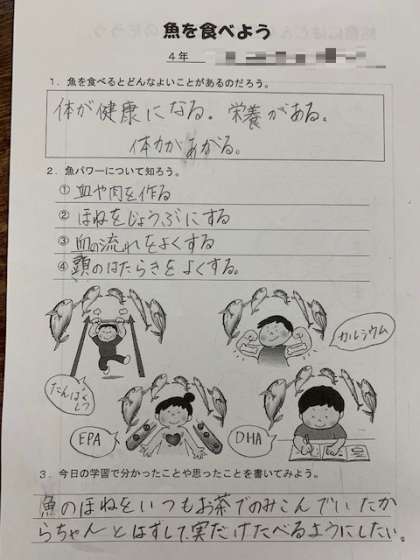 魚を食べよう
4年
1．魚を食べるとどんなよいことがあるのだろう。
体が健康になる。栄養がある。
体力があがる。
2．魚パワーについて知ろう。
① 血や肉を作る
② ほねをじょうぶにする
③ 血の流れをよくする
④ 頭のはたらきをよくする。
カルシウム
たんぱくしつ
EPA
DHA
3．今日の学習で分かったことや思ったことを書いてみよう。
魚のほねをいつもお茶でのみこんでいたか
らちゃんとはずして、実だけたべるようにしたい。